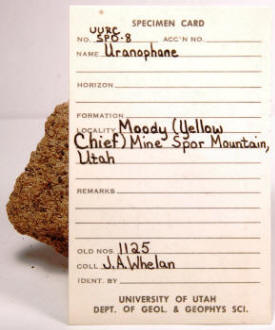 SPECIMEN CARD
UURC
NO. SPO-8 ACC'N NO.
NAME Uranophane
HORIZON
FORMATION
LOCALITY Moody (Yellow
Chief) Mine Spor Mountain,
Utah
REMARKS
OLD NOS 1125
COLL J.A. Whelan
IDENT. BY
UNIVERSITY OF UTAH
DEPT. OF GEOL. & GEOPHYS SCI.